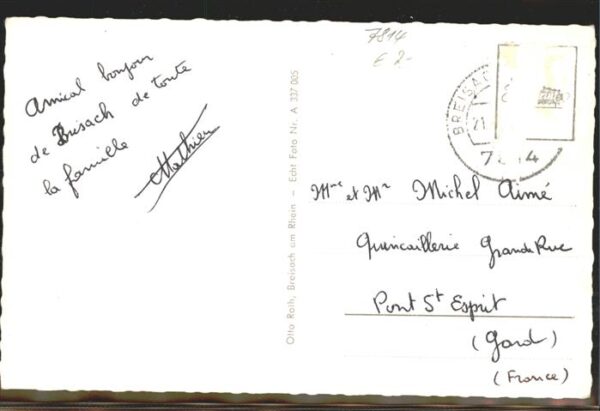 Amical bonjour
de Brisach de toute
la famille
Mathieu
Otto Roth, Breisach am Rhein - Echt Foto Nr. A 337 005
7814
€ 2-
BREISACH
21
7814
Mme et Mr Michel Aimé
Quincaillerie Grande Rue
Pont St Esprit
(Gard)
(France)